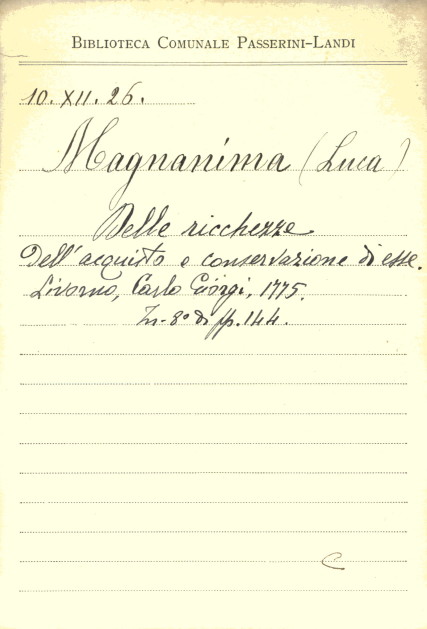 BIBLIOTECA COMUNALE PASSERINI-LANDI
10. XII. 26.
Magnanima (Luca)
Delle ricchezze
Dell'acquisto e conservazione di esse.
Livorno, Carlo Giorgi, 1775.
In-8° di pp. 144.
C